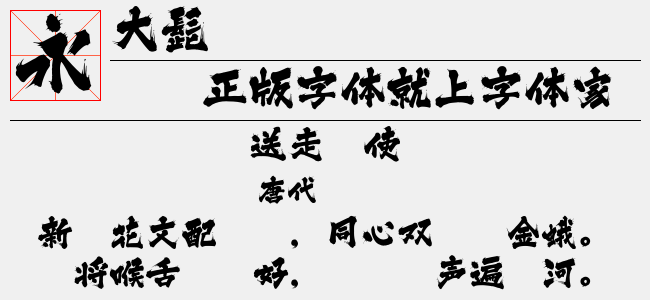 永
大髭
正版字体就上字体家
送走 使
唐代
新 花文配 ，同心双 金蛾。
将喉舌 好， 声遍 河。